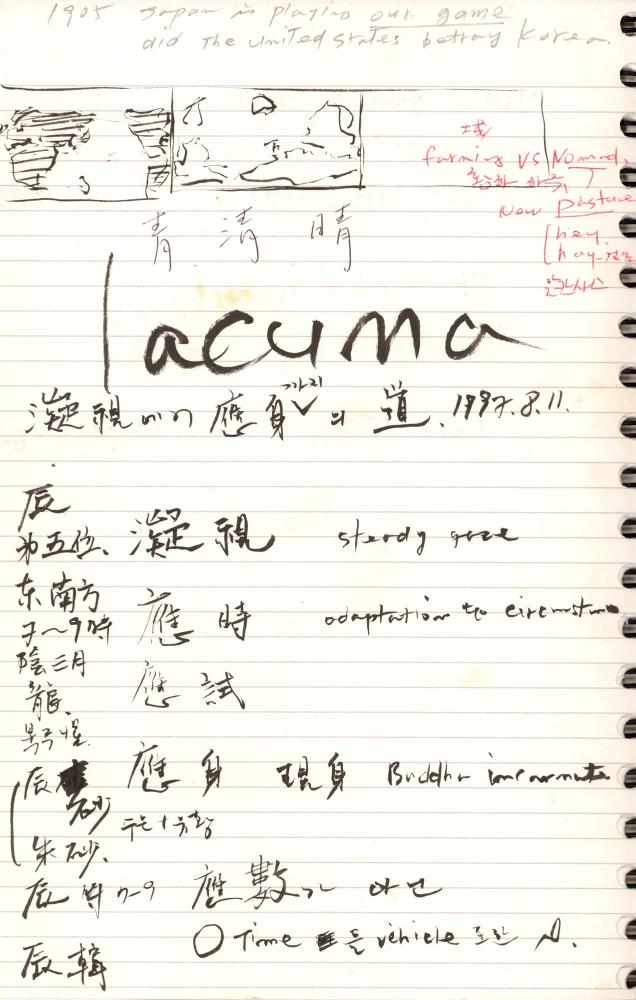 1905 Japan is playing our game
did The United States betray Korea.
域
farming VS Nomad,
New Pasture
hey.
hay
青 清 晴
lacuna
凝視에서 應身까지의 道. 1997.8.11.
辰
五位. 凝視 steady gaze
东南方
7~9時 應時 adaptation to circumstance
陰三月
龍. 應試
辰砂 應身 現身 Buddha incarnate
수은+유황
朱砂.
辰時 7-9 應數가 아닌
Time 을 vehicle 로한
辰韓